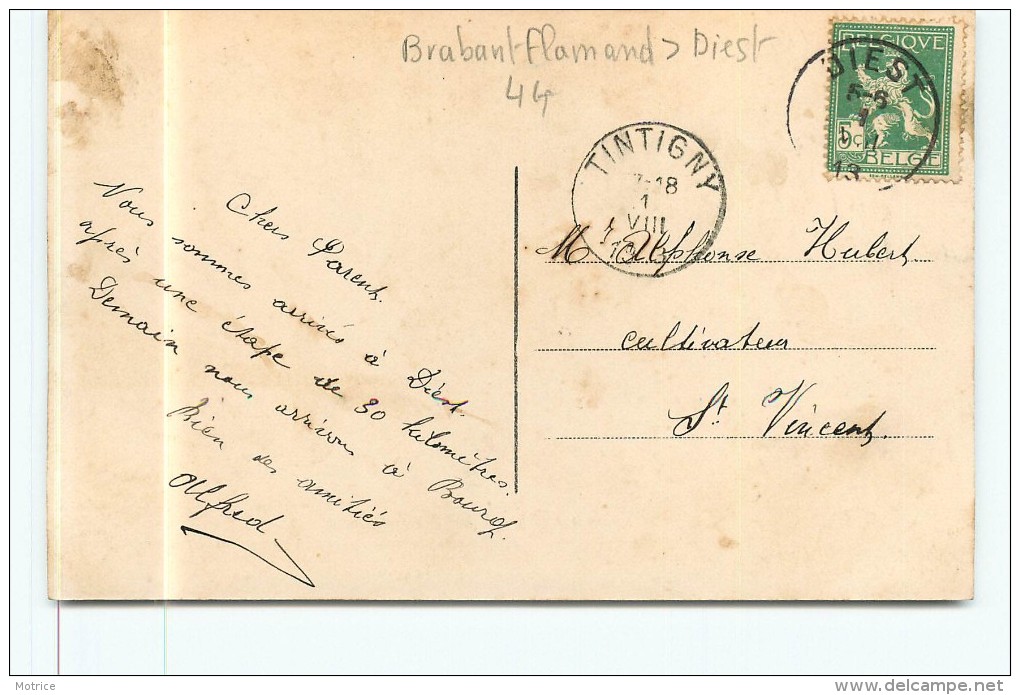 Brabant flamand > Diest
44
BELGIQUE
5c
BELGIË
DIEST
5-6
1
13
TINTIGNY
7-18
1
VIII
Chers Parents.
Nous sommes arrivés à Diest.
après une étape de 30 kilomètres.
Demain nous arrivons à Bourg
Bien des amitiés
Alfred
M Alphonse Hubert
cultivateur
St Vincent
Motrice
delcampe.net